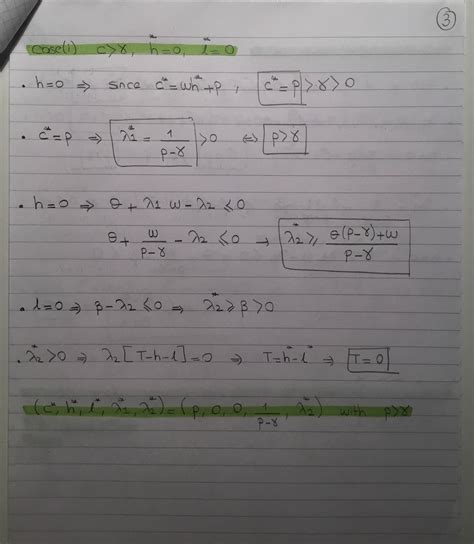 ③
case(1) c>γ, h*=0, l*=0
• h=0 ⇒ sınce c*=wh*+p, c*=p>γ>0
• c*=p ⇒ λ1*= 1/(p-γ) >0 ⇔ p>γ
• h=0 ⇒ θ+λ1 w-λ2 ≤0
θ+ w/(p-γ) -λ2 ≤0 → λ2* ≥ (θ(p-γ)+w)/(p-γ)
• l=0 ⇒ β-λ2 ≤0 ⇒ λ2* ≥ β >0
• λ2*>0 ⇒ λ2[T-h-l]=0 ⇒ T=h*-l* ⇒ T=0
(c*, h*, l*, λ2*, λ2*)=(p, 0, 0, 1/(p-γ), λ2*) with p>γ